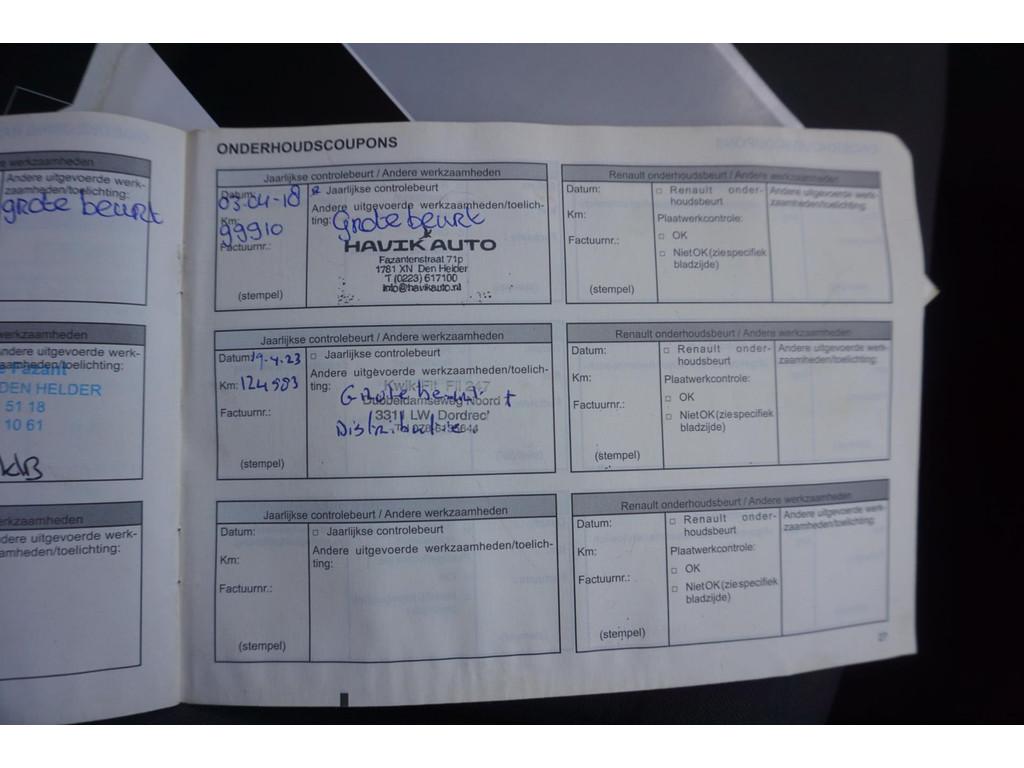 werkzaamheden
Andere uitgevoerde werk-
zaamheden/toelichting:
grote beurt
werkzaamheden
Andere uitgevoerde werk-
zaamheden/toelichting:
Fazant
DEN HELDER
51 18
10 61
werkzaamheden
dere uitgevoerde werk-
amheden/toelichting:
ONDERHOUDSCOUPONS
Jaarlijkse controlebeurt / Andere werkzaamheden
Datum: 03-04-18
Km: 99910
Factuurnr.:
(stempel)
Jaarlijkse controlebeurt
Andere uitgevoerde werkzaamheden/toelich-
ting: Grote beurt
HAVIK AUTO
Fazantenstraat 71p
1781 XN Den Helder
T (0223) 617100
info@havikauto.nl
Renault onderhoudsbeurt / Andere werkzaamheden
Datum:
Km:
Factuurnr.:
(stempel)
□ Renault onder-
houdsbeurt
Plaatwerkcontrole:
□ OK
□ Niet OK (zie specifiek
bladzijde)
Andere uitgevoerde werk-
zaamheden/toelichting:
Jaarlijkse controlebeurt / Andere werkzaamheden
Datum: 19-4-23
Km: 124583
Factuurnr.:
(stempel)
□ Jaarlijkse controlebeurt
Andere uitgevoerde werkzaamheden/toelich-
ting:
Kwik-Fit
Grote beurt +
Dubbeldamseweg Noord
3311 LW Dordrec
Renault onderhoudsbeurt / Andere werkzaamheden
Datum:
Km:
Factuurnr.:
(stempel)
□ Renault onder-
houdsbeurt
Plaatwerkcontrole:
□ OK
□ Niet OK (zie specifiek
bladzijde)
Andere uitgevoerde werk-
zaamheden/toelichting:
Jaarlijkse controlebeurt / Andere werkzaamheden
Datum:
Km:
Factuurnr.:
(stempel)
□ Jaarlijkse controlebeurt
Andere uitgevoerde werkzaamheden/toelich-
ting:
Renault onderhoudsbeurt / Andere werkzaamheden
Datum:
Km:
Factuurnr.:
(stempel)
□ Renault onder-
houdsbeurt
Plaatwerkcontrole:
□ OK
□ Niet OK (zie specifiek
bladzijde)
Andere uitgevoerde werk-
zaamheden/toelichting:
27